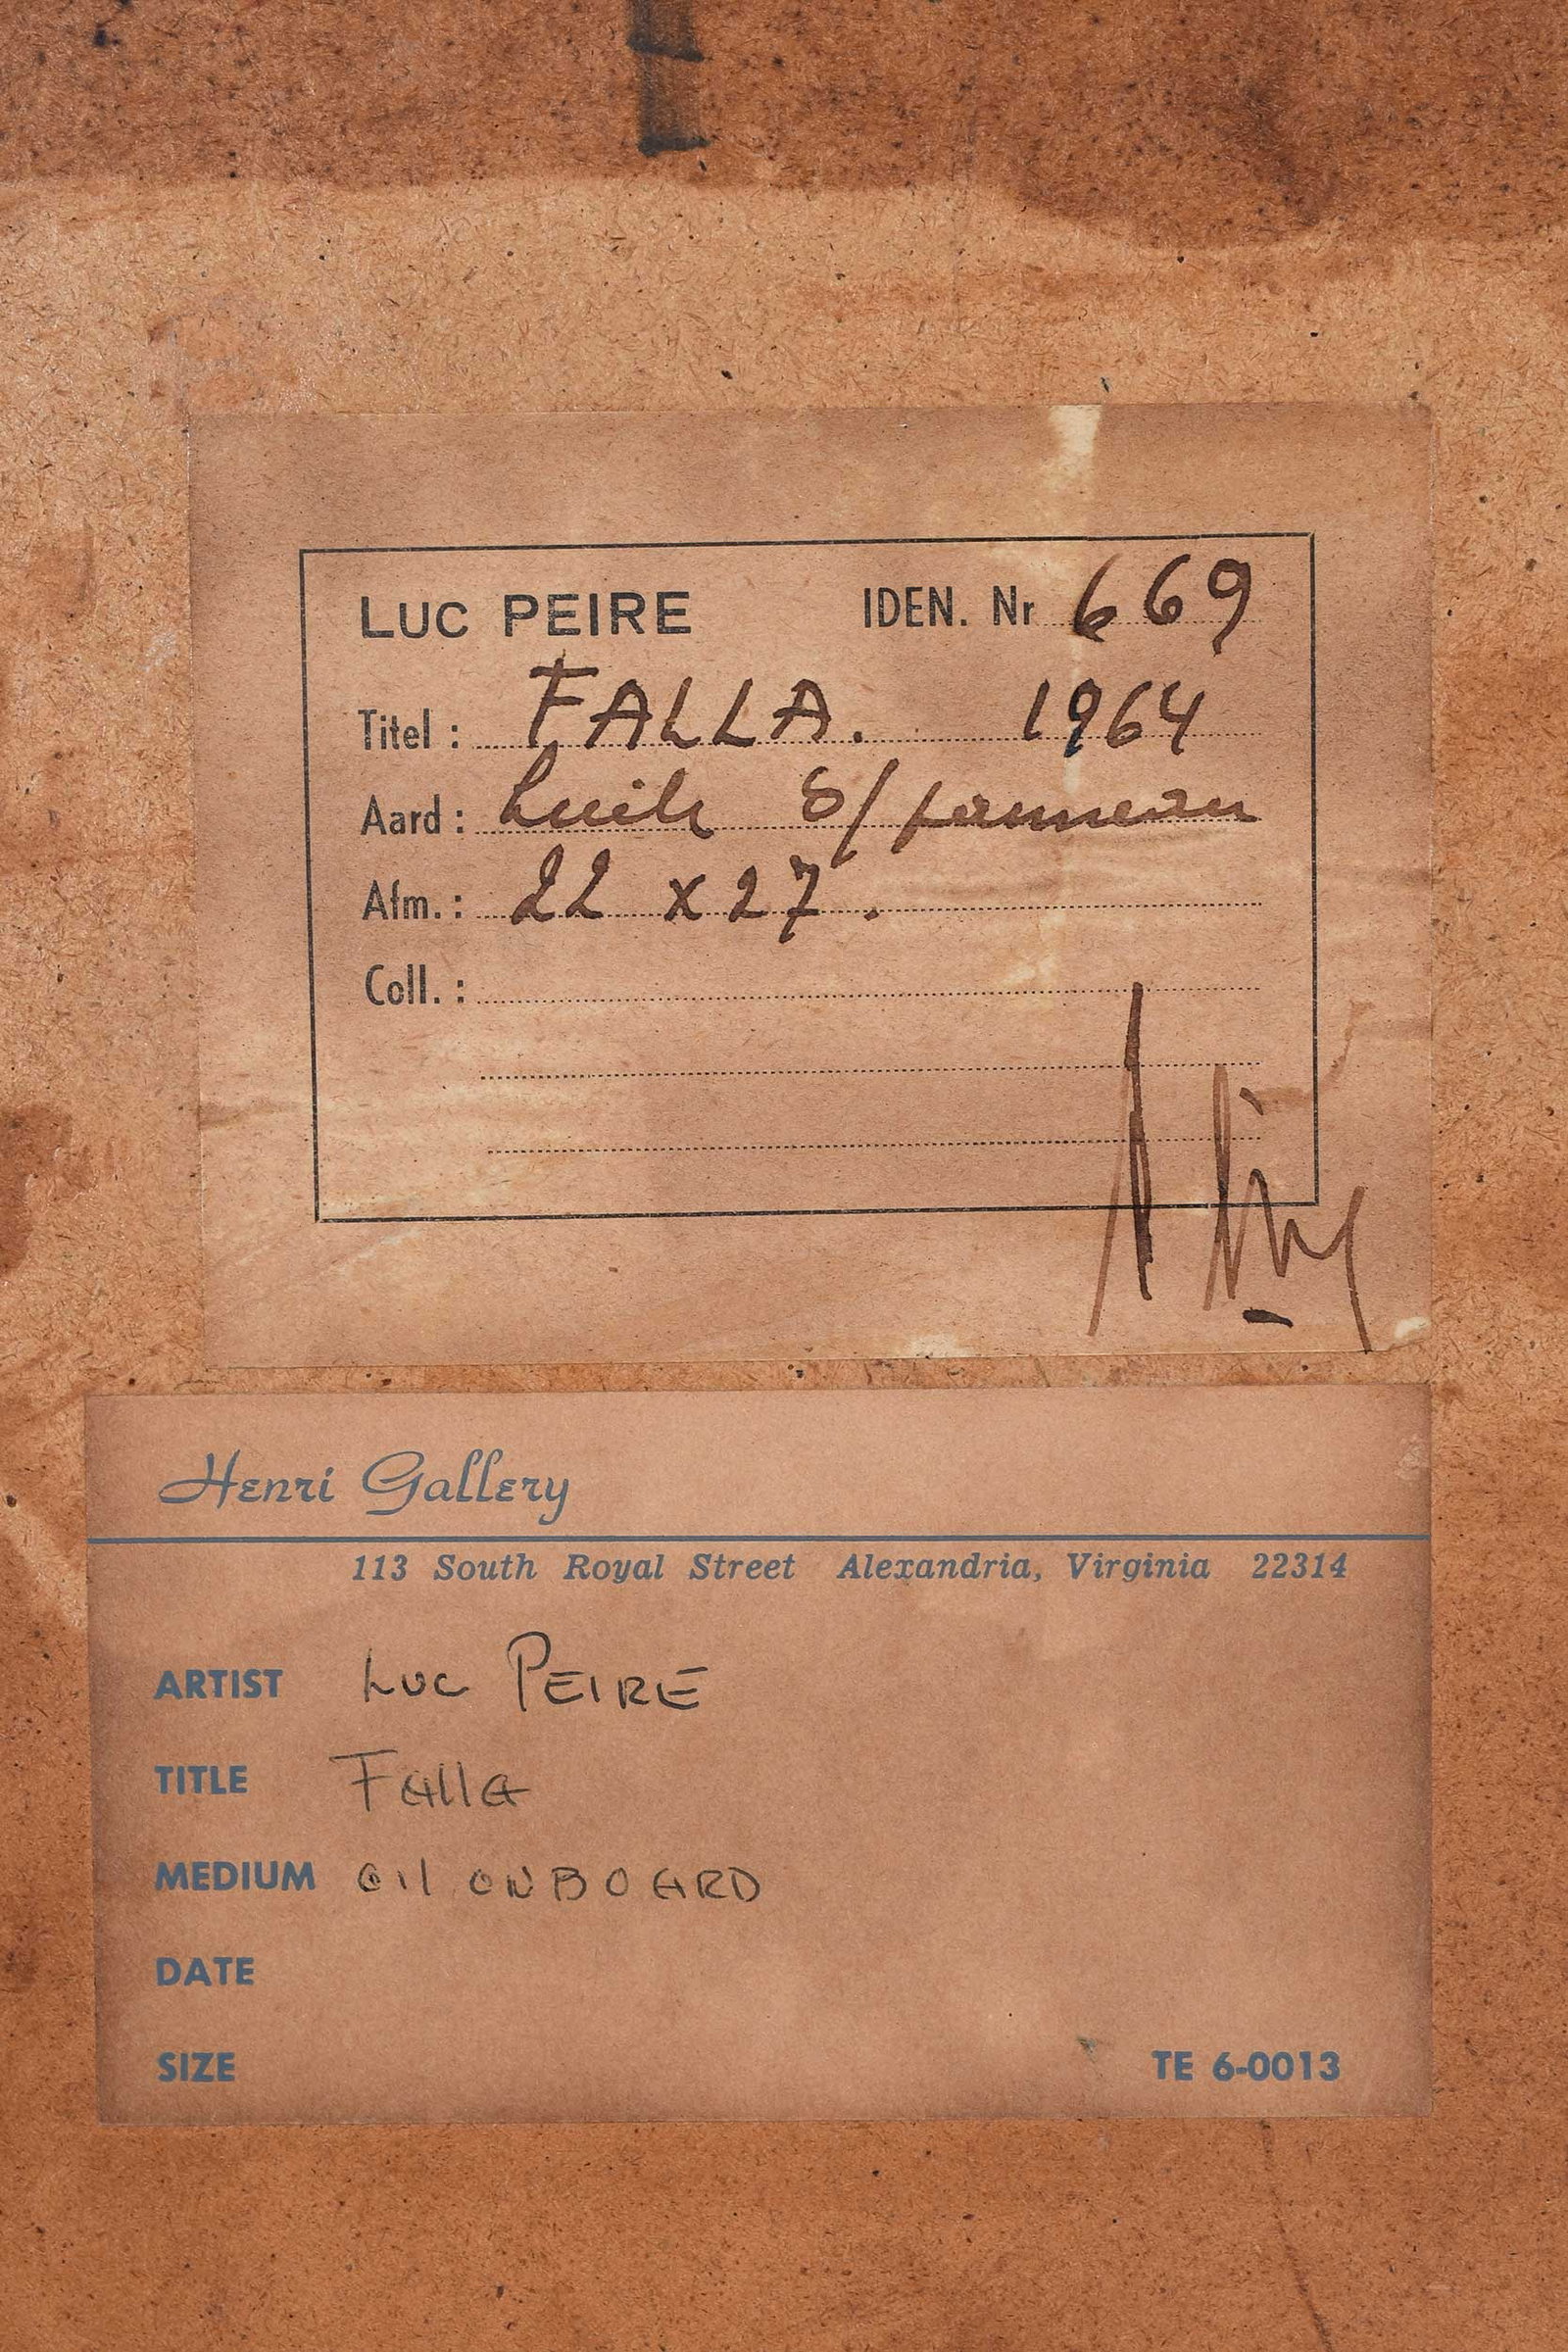 LUC PEIRE IDEN. Nr 669
Titel : FALLA. 1964
Aard : huile s/panneau
Afm. : 22 x 27.
Coll. :
Henri Gallery
113 South Royal Street Alexandria, Virginia 22314
ARTIST Luc PEIRE
TITLE Falla
MEDIUM Oil ON BOARD
DATE
SIZE TE 6-0013